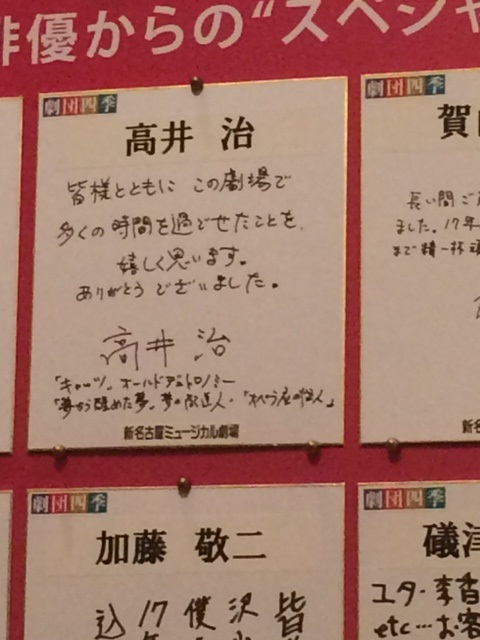 俳優からの“スペシャ
劇団四季
高井 治
皆様とともに この劇場で
多くの時間を過ごせたことを、
嬉しく思います。
ありがとうございました。
高井 治
「キャッツ」オールドデュトロノミー
「夢から醒めた夢」夢の配達人・「オペラ座の怪人」
新名古屋ミュージカル劇場
劇団四季
賀
長い間ご
ました。17年
まで精一杯
新名
劇団四季
加藤 敬二
皆
沢
僕
17
込
劇団四季
礒津
ユタ・李香
etc…お客